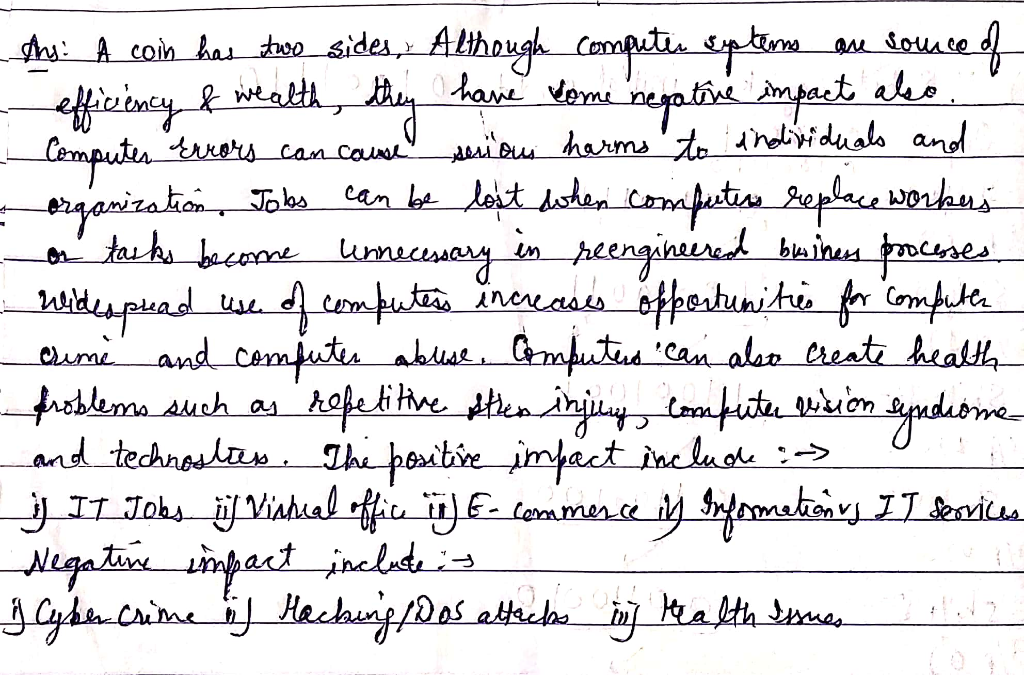 Ans: A coin has two sides. Although computer systems are source of
efficiency & wealth, they have some negative impacts also.
Computer Errors can cause serious harms to individuals and
organization. Jobs can be lost when computers replace workers
or tasks become unnecessary in reengineered business processes.
widespread use of computers increases opportunities for computer
crime and computer abuse. Computers can also create health
problems such as repetitive stress injury, computer vision syndrome
and technostress. The positive impact include :→
i) IT Jobs ii) Virtual offic iii) E-commerce iv) Information v) IT Services
Negative impact include :→
i) Cyber Crime ii) Hacking/DoS attacks iii) Health Issues